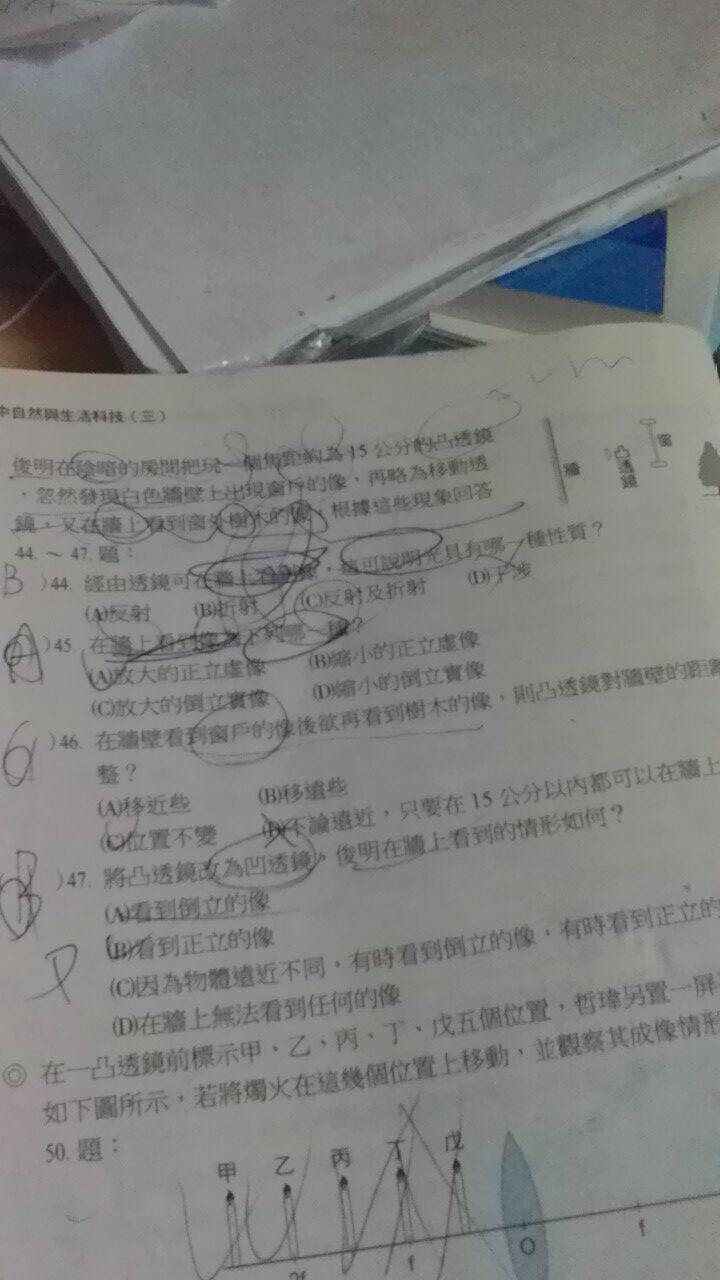 中自然與生活科技（三）
俊明在陰暗的房間把玩一個焦距約為15公分的凸透鏡
，忽然發現白色牆壁上出現窗戶的像，再略為移動透
鏡，又在牆上看到窗外樹木的像，根據這些現象回答
44.～47.題：
牆
凸透鏡
窗
B )44. 經由透鏡可在牆上看到像，這可說明光具有哪一種性質？
(A)反射 (B)折射 (C)反射及折射 (D)干涉
)45. 在牆上看到像為下列哪一種？
(A)放大的正立虛像 (B)縮小的正立虛像
(C)放大的倒立實像 (D)縮小的倒立實像
)46. 在牆壁看到窗戶的像後欲再看到樹木的像，則凸透鏡對牆壁的距離
整？
(A)移近些 (B)移遠些
(C)位置不變 (D)不論遠近，只要在15公分以內都可以在牆上
)47. 將凸透鏡改為凹透鏡，俊明在牆上看到的情形如何？
(A)看到倒立的像
(B)看到正立的像
(C)因為物體遠近不同，有時看到倒立的像，有時看到正立的
(D)在牆上無法看到任何的像
◎ 在一凸透鏡前標示甲、乙、丙、丁、戊五個位置，哲瑋另置一屏
如下圖所示，若將燭火在這幾個位置上移動，並觀察其成像情形
50. 題：
甲 乙 丙 丁 戊
2f f O f